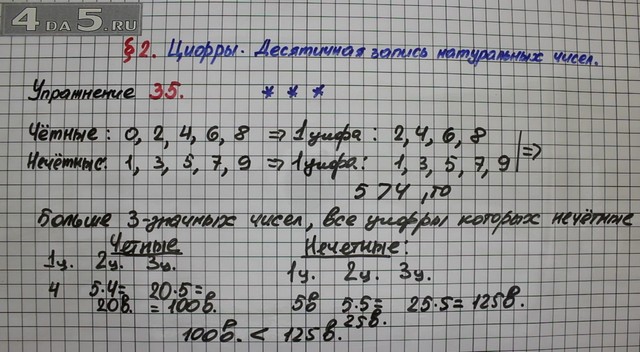 4DA5.RU
§2. Цифры. Десятичная запись натуральных чисел.
Упражнение 35. * * *
Чётные: 0, 2, 4, 6, 8 => 1 цифра: 2, 4, 6, 8
Нечётные: 1, 3, 5, 7, 9 => 1 цифра: 1, 3, 5, 7, 9 | =>
5 > 4, то
Больше 3-значных чисел, все цифры которых нечётные
Четные Нечетные:
1ц. 2ц. 3ц. 1ц. 2ц. 3ц.
4 5·4= 20·5= 5в 5·5= 25·5=125в.
20в. =100в. 25в.
100в. < 125в.